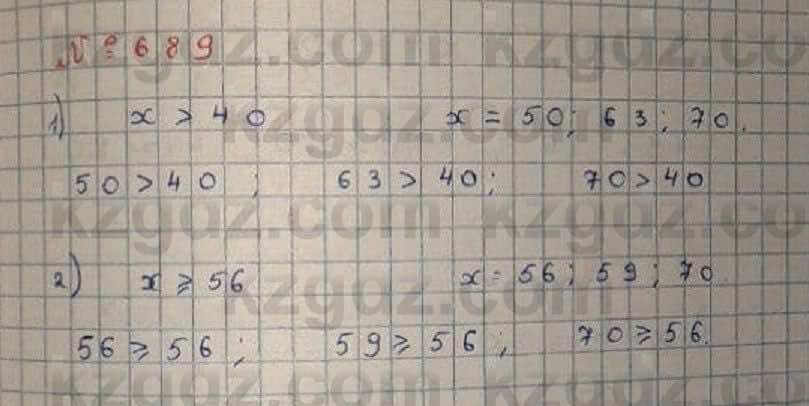 № 689
1) x > 40 x = 50; 63; 70.
50 > 40 ; 63 > 40; 70 > 40
2) x ⩾ 56 x = 56; 59; 70
56 ⩾ 56; 59 ⩾ 56; 70 ⩾ 56.
kzgdz.com kzgdz.com